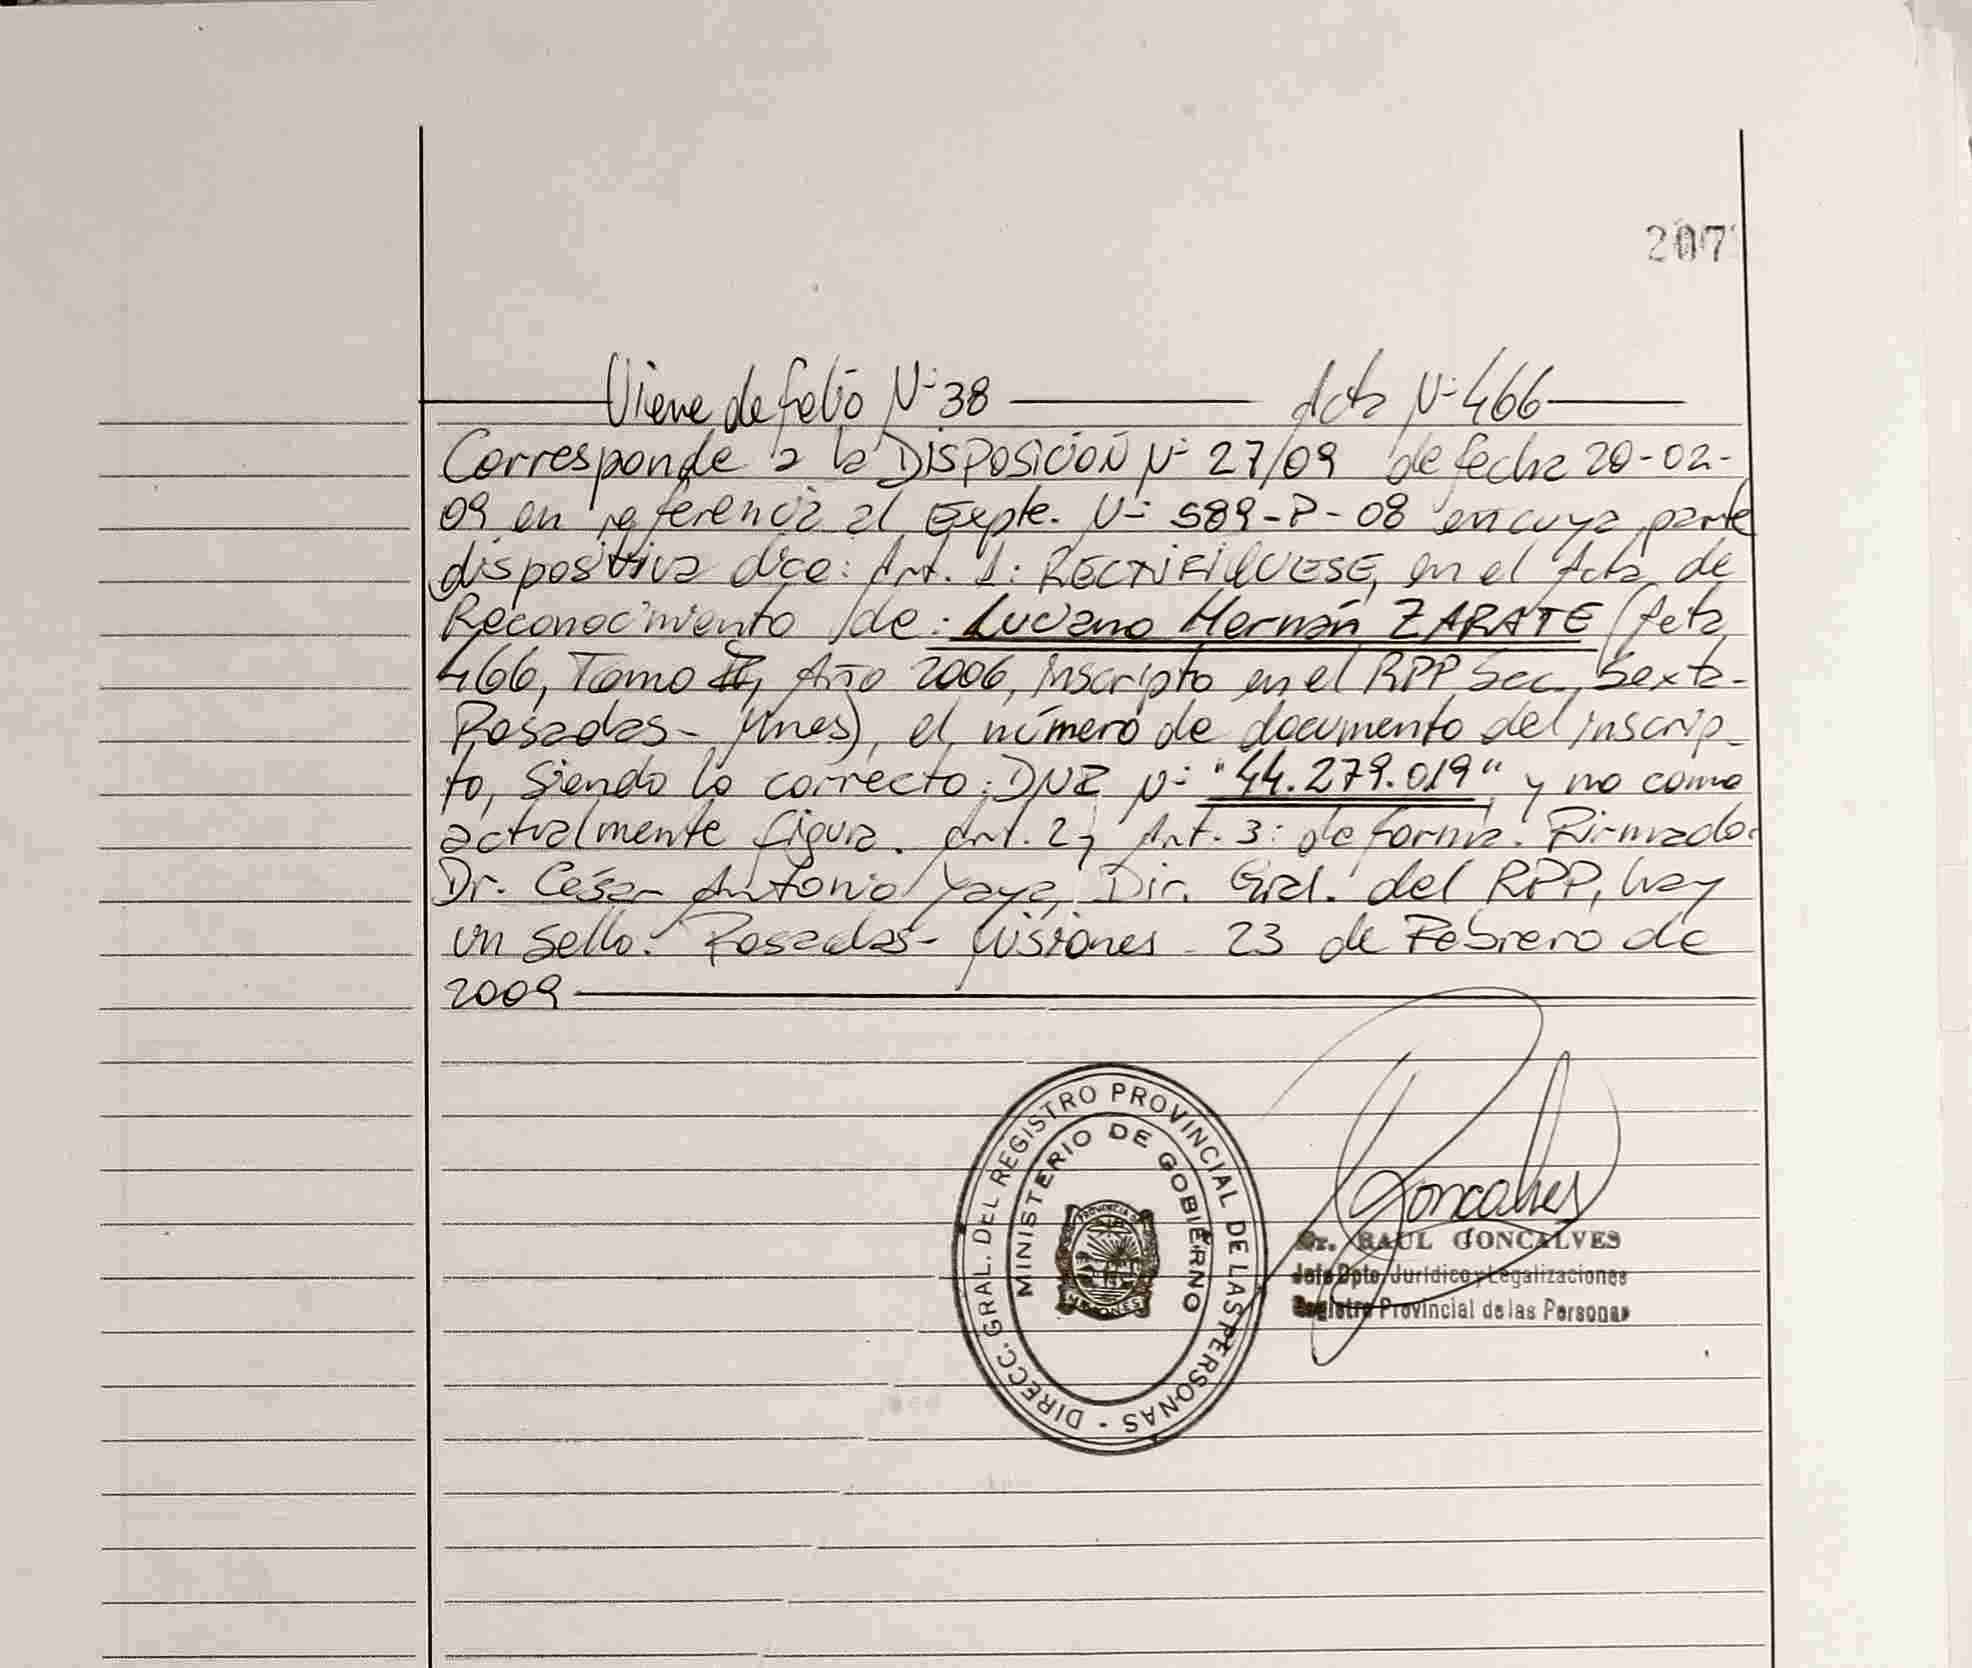 207
Viene de folio N° 38 Acta N° 466
Corresponde a la DISPOSICIÓN N° 27/09 de fecha 20-02-
09 en referencia al Expte. N° 589-P-08 en cuya parte
dispositiva dice: Art. 1: RECTIFIQUESE, en el Acta de
Reconocimiento de: Luciano Hernán ZARATE (Acta
466, Tomo II, Año 2006, inscripto en el RPP, Sec. Sexta-
Posadas- Mnes), el número de documento del inscrip-
to, siendo lo correcto: DNI N° "44.279.019" y no como
actualmente figura. Art. 2 y Art. 3: de forma. Firmado.
Dr. César Antonio Yaya, Dir. Gral. del RPP, hay
un sello. Posadas- Misiones - 23 de Febrero de
2009
DIRECC. GRAL. DEL REGISTRO PROVINCIAL DE LAS PERSONAS -
MINISTERIO DE GOBIERNO
PROVINCIA DE
MISIONES
Goncalves
Dr. RAUL GONCALVES
Jefe Dpto. Jurídico y Legalizaciones
Registro Provincial de las Personas